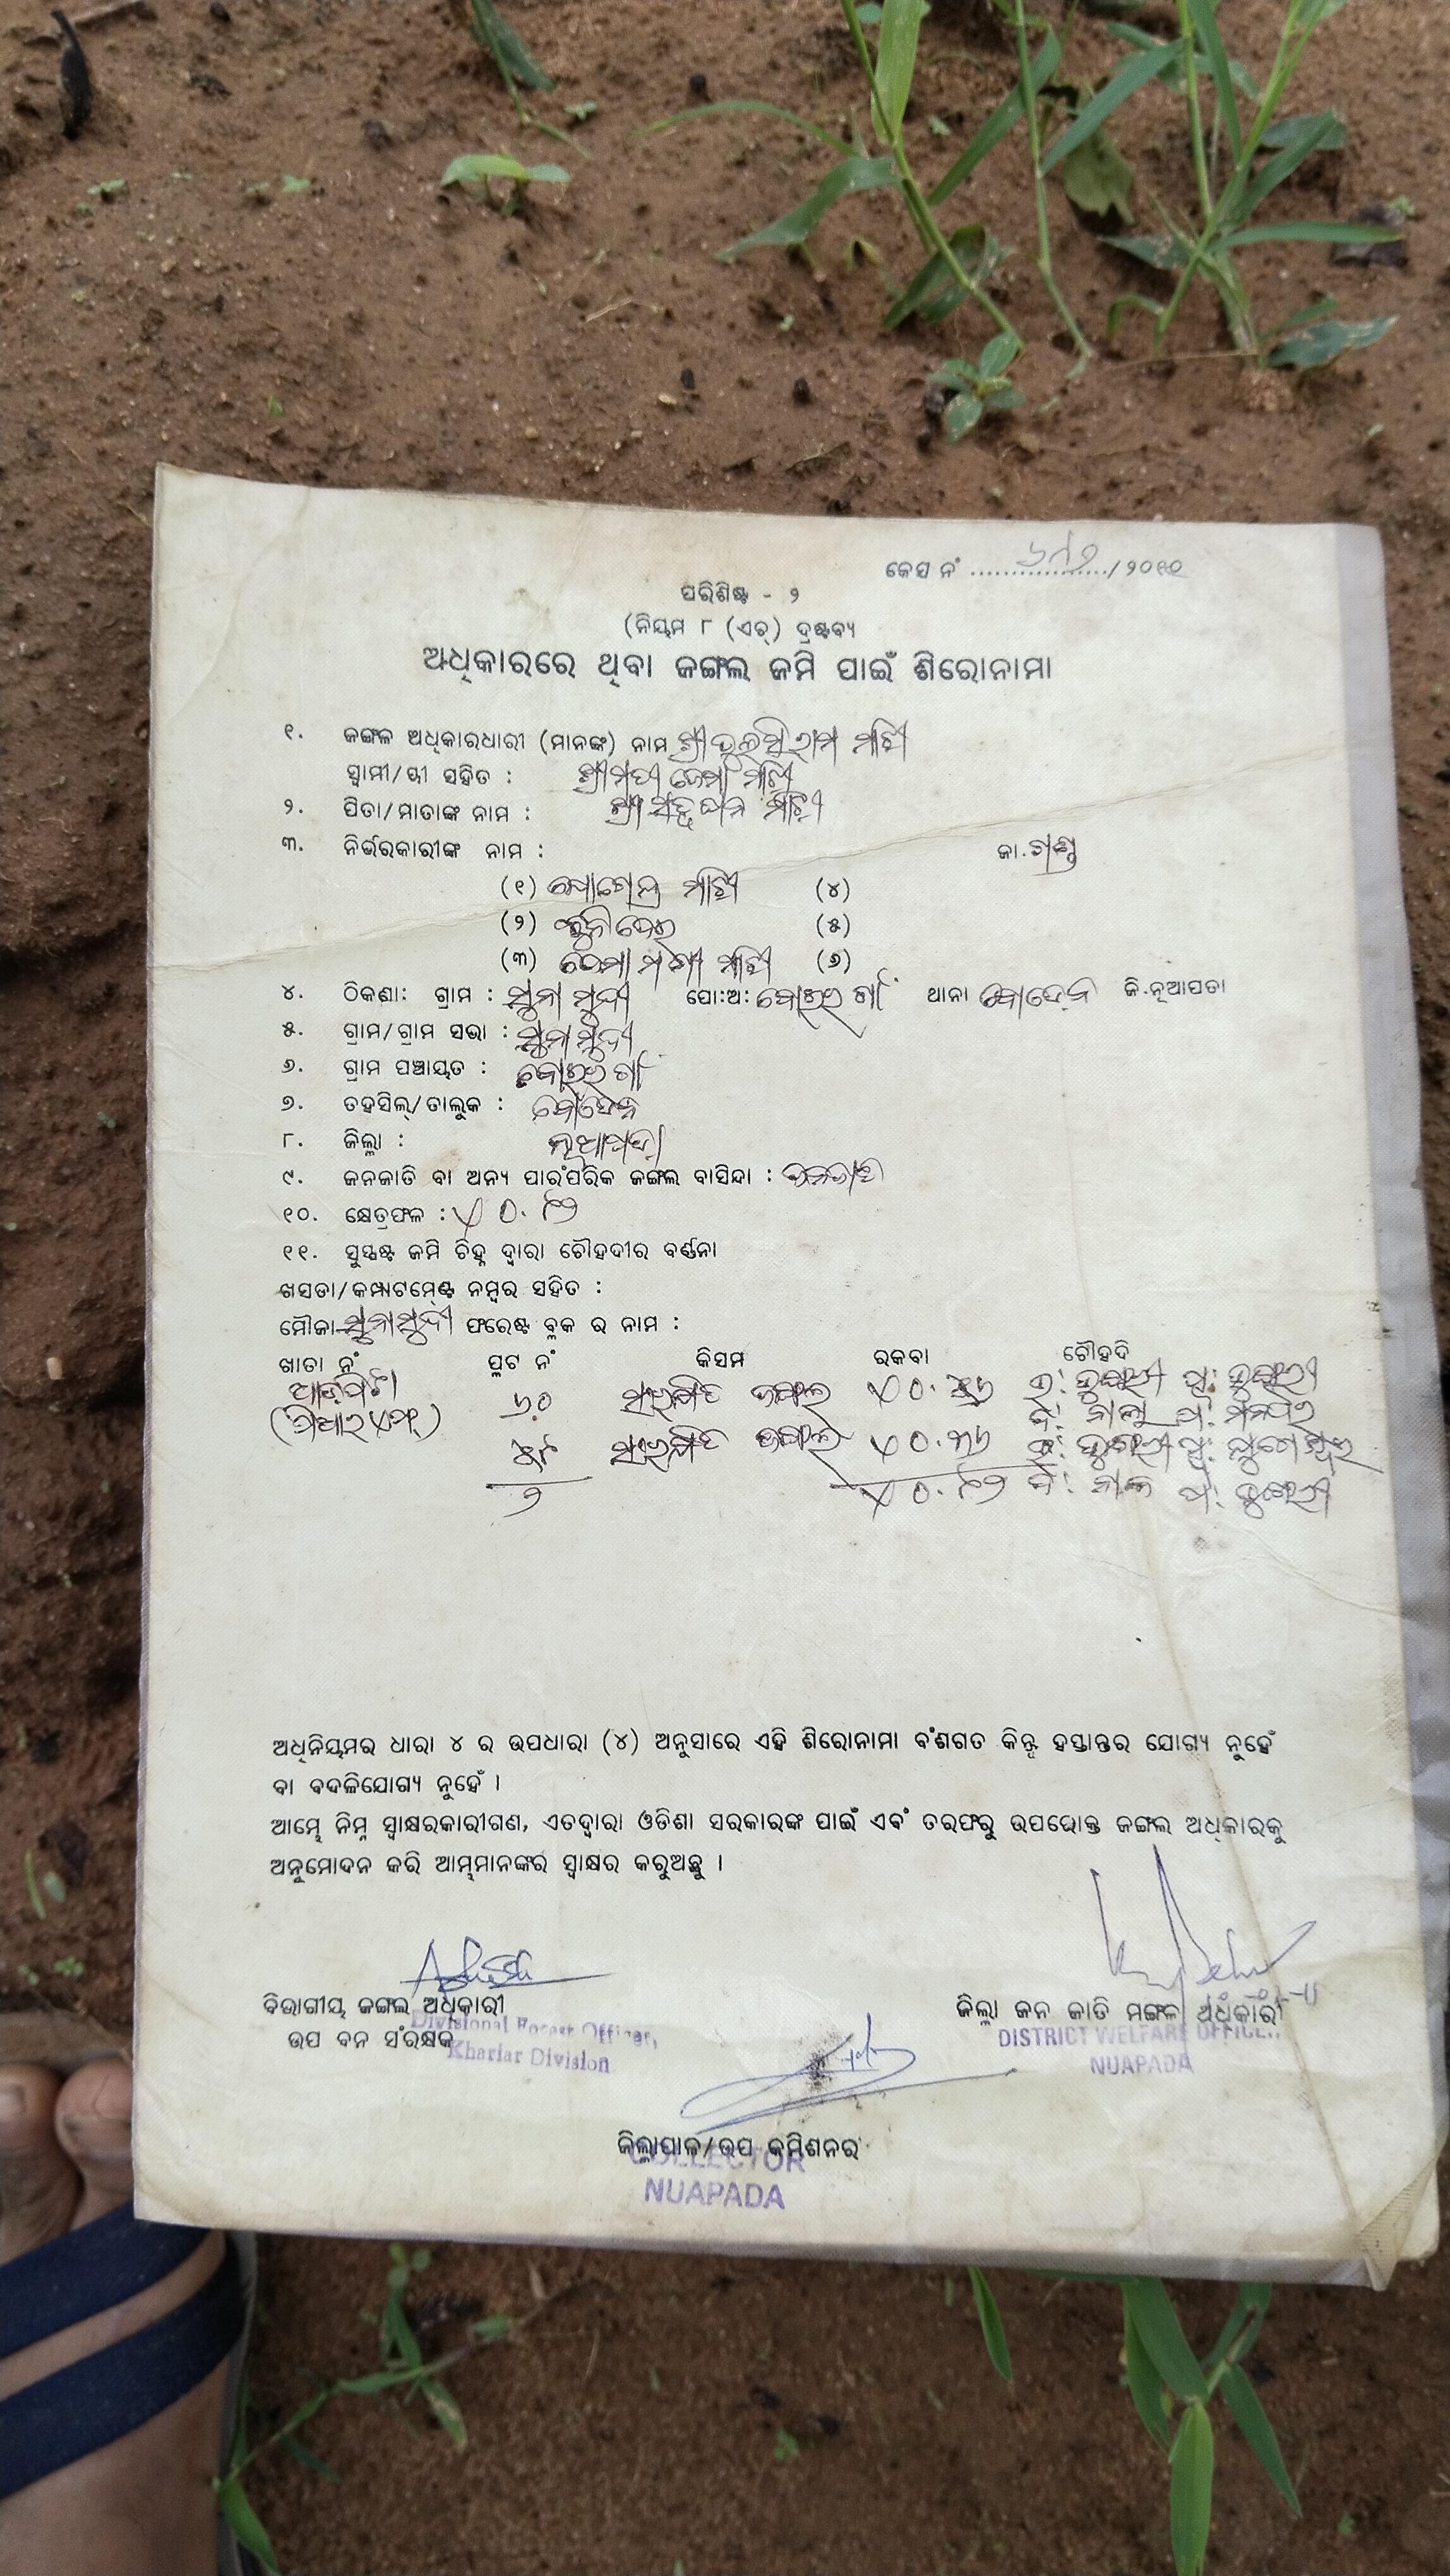 କେସ ନଂ ................../୨୦୧୦
ପରିଶିଷ୍ଟ - ୨
(ନିୟମ ୮ (ଏଚ୍) ଦ୍ରଷ୍ଟବ୍ୟ
ଅଧିକାରରେ ଥିବା ଜଙ୍ଗଲ ଜମି ପାଇଁ ଶିରୋନାମା
୧. ଜଙ୍ଗଳ ଅଧିକାରଧାରୀ (ମାନଙ୍କ) ନାମ ଶ୍ରୀ ତୁଲସିରାମ ମାଝୀ
ସ୍ୱାମୀ/ସ୍ତ୍ରୀ ସହିତ : ଶ୍ରୀମତୀ ହେମା ମାଝୀ
୨. ପିତା/ମାତାଙ୍କ ନାମ : ଶ୍ରୀ ମାଝୀ
୩. ନିର୍ଭରକାରୀଙ୍କ ନାମ : ଜା.ଗଣ୍ଡ
(୧) ମାଝୀ (୪)
(୨) (୫)
(୩) ମାଝୀ (୬)
୪. ଠିକଣା: ଗ୍ରାମ : ସୁନାମୁଦୀ ପୋ:ଅ: ବୋଇରଗାଁ ଥାନା ବୋଡେନ ଜି.ନୂଆପଡା
୫. ଗ୍ରାମ/ଗ୍ରାମ ସଭା : ସୁନାମୁଦୀ
୬. ଗ୍ରାମ ପଞ୍ଚାୟତ : ବୋଇରଗାଁ
୭. ତହସିଲ୍/ତାଲୁକ : ବୋଡେନ
୮. ଜିଲ୍ଲା : ନୂଆପଡ଼ା
୯. ଜନଜାତି ବା ଅନ୍ୟ ପାରଂପରିକ ଜଙ୍ଗଲ ବାସିନ୍ଦା : ଜନଜାତି
୧୦. କ୍ଷେତ୍ରଫଳ : ୦.୮୨
୧୧. ସୁସ୍ପଷ୍ଟ ଜମି ଚିହ୍ନ ଦ୍ୱାରା ଚୌହଦୀର ବର୍ଣ୍ଣନା
ଖସଡା/କମ୍ପାଟମେଣ୍ଟ ନମ୍ବର ସହିତ :
ମୌଜା ସୁନାମୁଦୀ ଫରେଷ୍ଟ ବ୍ଲକ ର ନାମ :
ଖାତା ନଂ ପ୍ଲଟ ନଂ କିସମ ରକବା ଚୌହଦି
୬୦ ସଂରକ୍ଷିତ ଜଙ୍ଗଲ ୦.୪୬ ଉ: ଡୁଙ୍ଗରୀ ପୂ: ଡୁଙ୍ଗରୀ
ଦ: ନାଲା ପ:
ସଂରକ୍ଷିତ ଜଙ୍ଗଲ ୦.୩୬ ଉ: ଡୁଙ୍ଗରୀ ପୂ:
୨ ୦.୮୨ ଦ: ନାଲା ପ: ଡୁଙ୍ଗରୀ
ଅଧିନିୟମର ଧାରା ୪ ର ଉପଧାରା (୪) ଅନୁସାରେ ଏହି ଶିରୋନାମା ବଂଶଗତ କିନ୍ତୁ ହସ୍ତାନ୍ତର ଯୋଗ୍ୟ ନୁହେଁ
ବା ବଦଳିଯୋଗ୍ୟ ନୁହେଁ ।
ଆମ୍ଭେ ନିମ୍ନ ସ୍ୱାକ୍ଷରକାରୀଗଣ, ଏତଦ୍ୱାରା ଓଡିଶା ସରକାରଙ୍କ ପାଇଁ ଏବଂ ତରଫରୁ ଉପରୋକ୍ତ ଜଙ୍ଗଲ ଅଧିକାରକୁ
ଅନୁମୋଦନ କରି ଆମ୍ଭମାନଙ୍କର ସ୍ୱାକ୍ଷର କରୁଅଛୁ ।
ବିଭାଗୀୟ ଜଙ୍ଗଲ ଅଧିକାରୀ
ଉପ ବନ ସଂରକ୍ଷକ
Divisional Forest Officer,
Khariar Division
ଜିଲ୍ଲା ଜନ ଜାତି ମଙ୍ଗଳ ଅଧିକାରୀ
DISTRICT WELFARE OFFICER
NUAPADA
ଜିଲ୍ଲାପାଳ/ଉପ କମିଶନର
COLLECTOR
NUAPADA